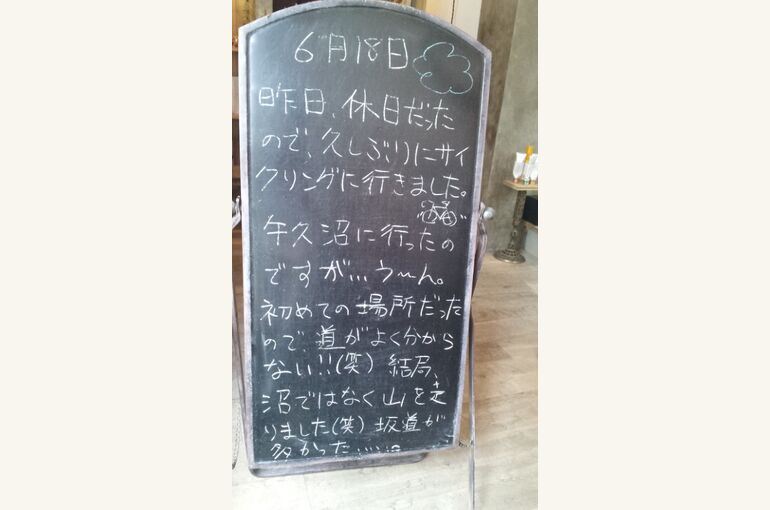 6月18日
昨日、休日だった
ので、久しぶりにサイ
クリングに行きました。
牛久沼に行ったの
ですが…う〜ん。
初めての場所だった
ので、道がよく分から
ない!!(笑) 結局、
沼ではなく山を走
りました(笑) 坂道が
多かった……。